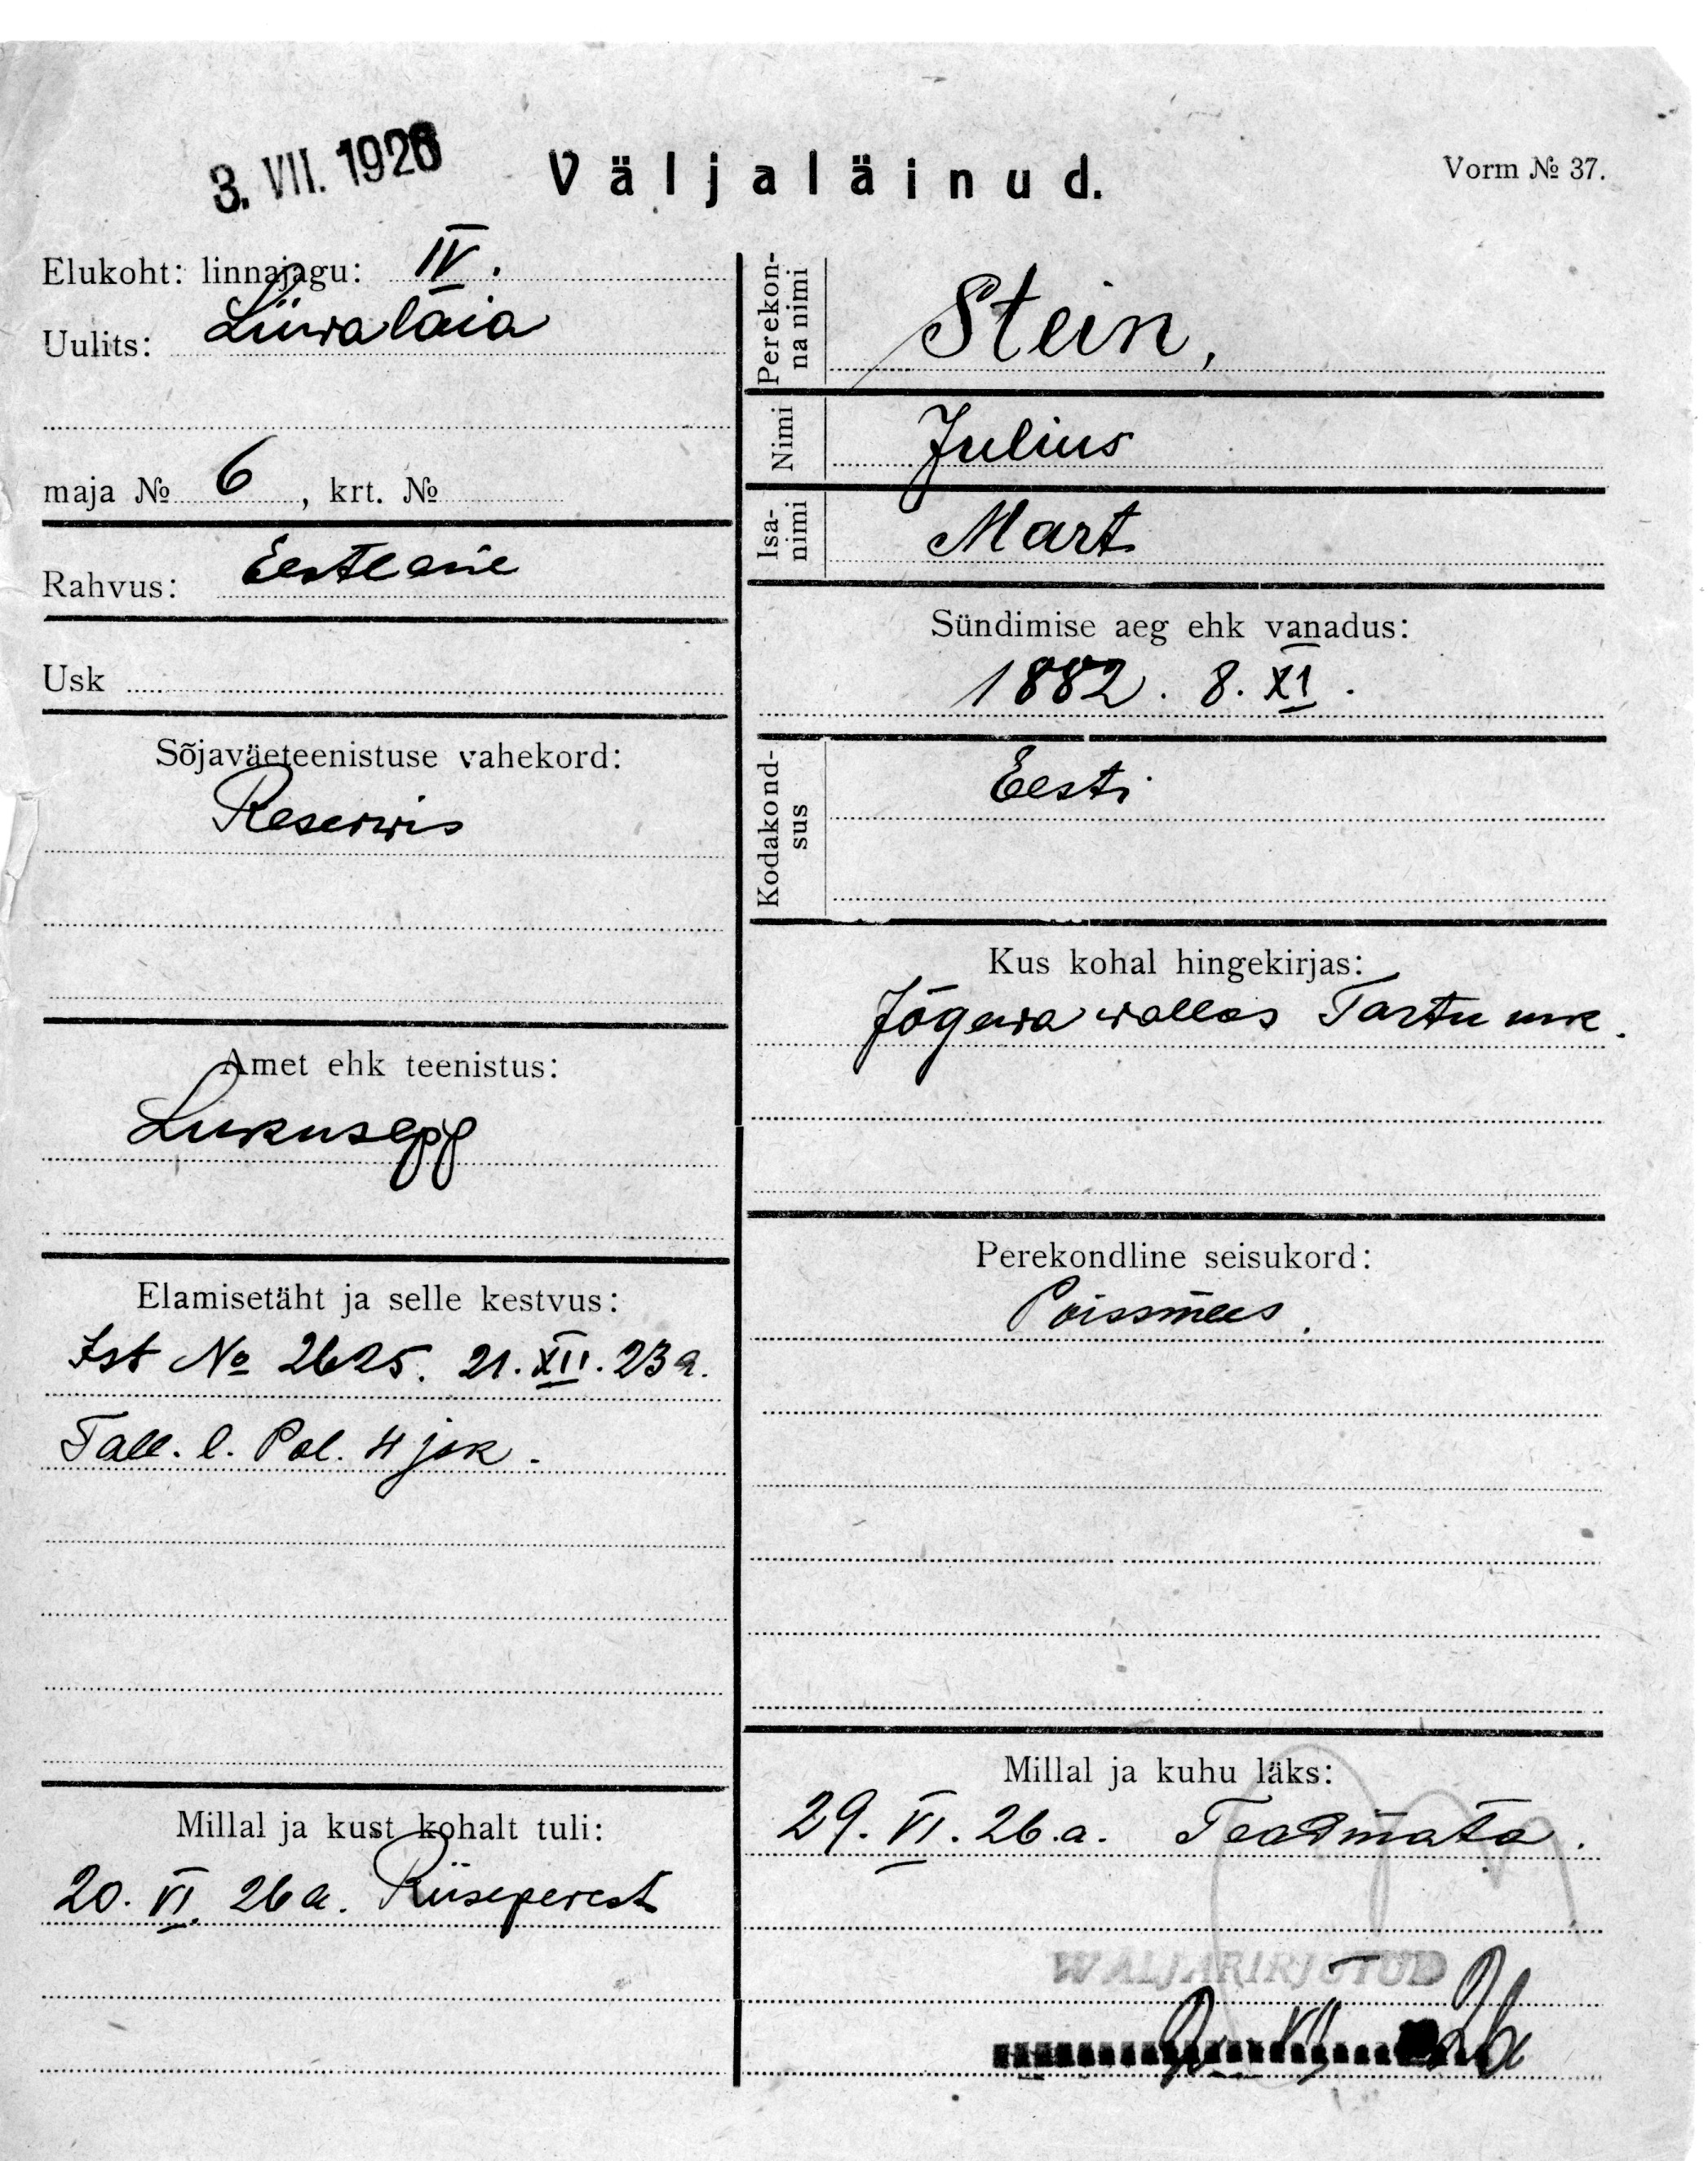 3. VII. 1926
Väljaläinud.
Vorm № 37.
Elukoht: linnajagu: IV.
Uulits: Liiwalaia
maja № 6, krt. №
Rahvus: Eestlane
Usk
Sõjaväeteenistuse vahekord:
Reserwis
Amet ehk teenistus:
Lukusepp
Elamisetäht ja selle kestvus:
Ist № 2625. 21. XII. 23 a.
Tall. l. Pol. 4 jsk.
Millal ja kust kohalt tuli:
20. VI. 26 a. Riisiperest
Perekon-
na nimi
Stein,
Nimi
Julius
Isa-
nimi
Mart
Sündimise aeg ehk vanadus:
1882. 8. XI.
Kodakond-
sus
Eesti
Kus kohal hingekirjas:
Jõgewa wallas Tartu mk.
Perekondline seisukord:
Poissmees.
Millal ja kuhu läks:
29. VI. 26.a. Teadmata.
WÄLJAKIRJUTUD